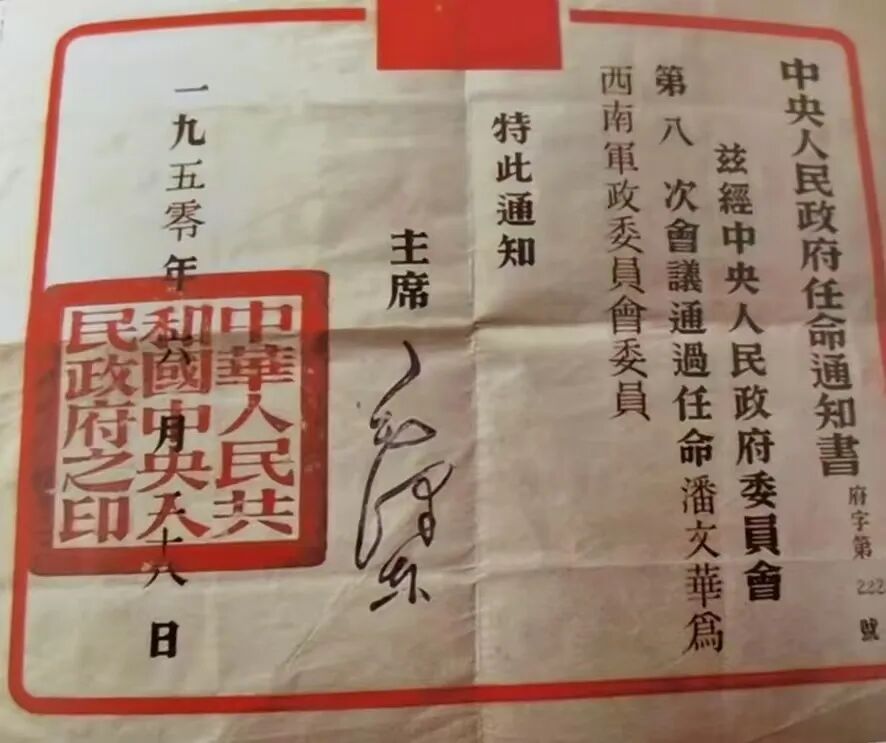 中央人民政府任命通知書
府字第222號
茲經中央人民政府委員會
第八次會議通過任命潘文華爲
西南軍政委員會委員
特此通知
主席 毛澤東
一九五零年六月二十八日
中華人民共
和國中央人
民政府之印